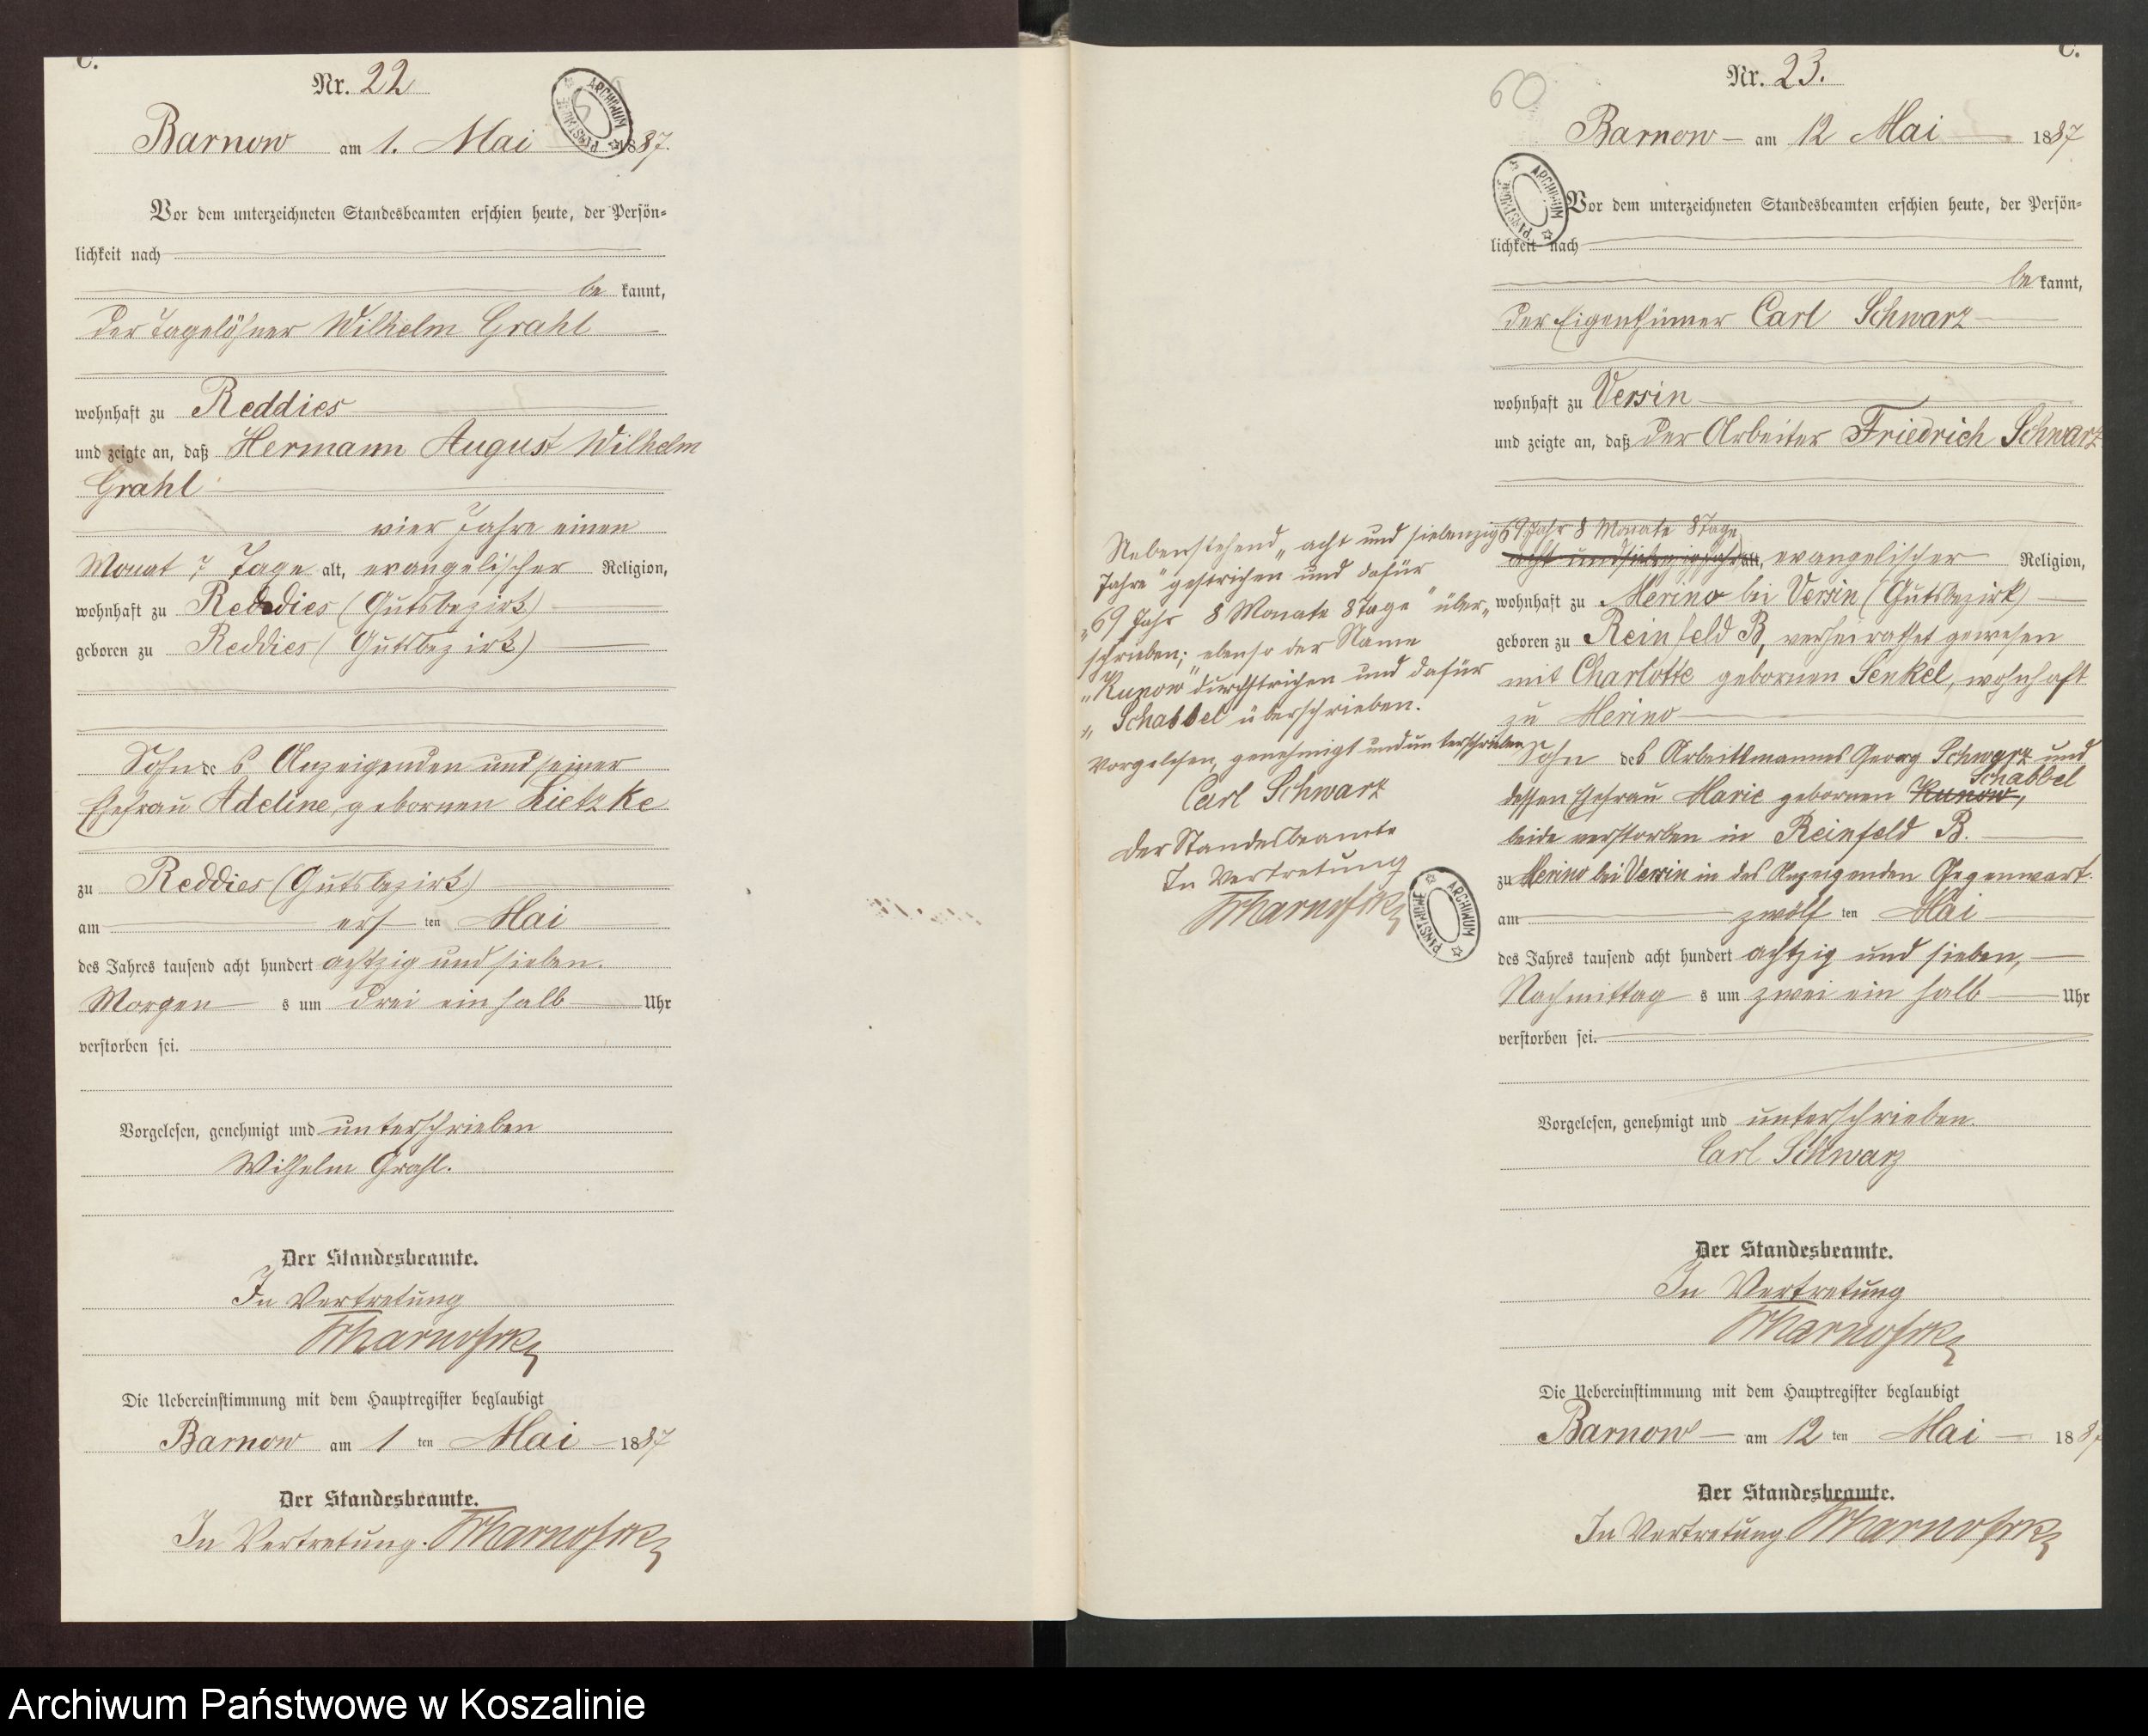 C.
Nr. 22
ARCHIWUM PAŃSTWOWE
Barnow am 1. Mai 1887.
Vor dem unterzeichneten Standesbeamten erschien heute, der Persön=
lichkeit nach
be kannt,
der Tagelöhner Wilhelm Grahl
wohnhaft zu Reddies
und zeigte an, daß Hermann August Wilhelm
Grahl
vier Jahre einen
Monat 7 Tage alt, evangelischer Religion,
wohnhaft zu Reddies (Gutsbezirk)
geboren zu Reddies (Gutsbezirk)
Sohn des Anzeigenden und seiner
Ehefrau Adeline, gebornen Lietzke
zu Reddies (Gutsbezirk)
am ersten Mai
des Jahres tausend acht hundert achtzig und sieben.
Morgens um drei ein halb Uhr
verstorben sei.
Vorgelesen, genehmigt und unterschrieben
Wilhelm Grahl.
Der Standesbeamte.
In Vertretung
Die Uebereinstimmung mit dem Hauptregister beglaubigt
Barnow am 1 ten Mai 1887
Der Standesbeamte.
In Vertretung.
C.
60
Nr. 23.
Barnow am 12 Mai 1887
ARCHIWUM PAŃSTWOWE
Vor dem unterzeichneten Standesbeamten erschien heute, der Persön=
lichkeit nach
be kannt,
der Eigenthümer Carl Schwarz
wohnhaft zu Versin
und zeigte an, daß der Arbeiter Friedrich Schwarz
69 Jahr 8 Monate 8 Tage
acht und siebenzig Jahr alt, evangelischer Religion,
wohnhaft zu Merino bei Versin (Gutsbezirk)
geboren zu Reinfeld B, verheirathet gewesen
mit Charlotte gebornen Senkel, wohnhaft
zu Merino
Sohn des Arbeitsmannes Georg Schwarz und
Schabbel
dessen Ehefrau Marie gebornen Kunow,
beide verstorben in Reinfeld B.
zu Merino bei Versin in des Anzeigenden Gegenwart.
am zwölf ten Mai
des Jahres tausend acht hundert achtzig und sieben,
Nachmittags um zwei ein halb Uhr
verstorben sei.
Vorgelesen, genehmigt und unterschrieben.
Carl Schwarz
Der Standesbeamte.
In Vertretung
Die Uebereinstimmung mit dem Hauptregister beglaubigt
Barnow am 12 ten Mai 1887
Der Standesbeamte.
In Vertretung
Nebenstehend „acht und siebenzig
Jahre" gestrichen und dafür
„69 Jahr 8 Monate 8 Tage" über„
schrieben; ebenso der Name
„Kunow" durchstrichen und dafür
„Schabbel überschrieben.
Vorgelesen, genehmigt und unterschrieben
Carl Schwarz
Der Standesbeamte
In Vertretung
ARCHIWUM PAŃSTWOWE
Archiwum Państwowe w Koszalinie